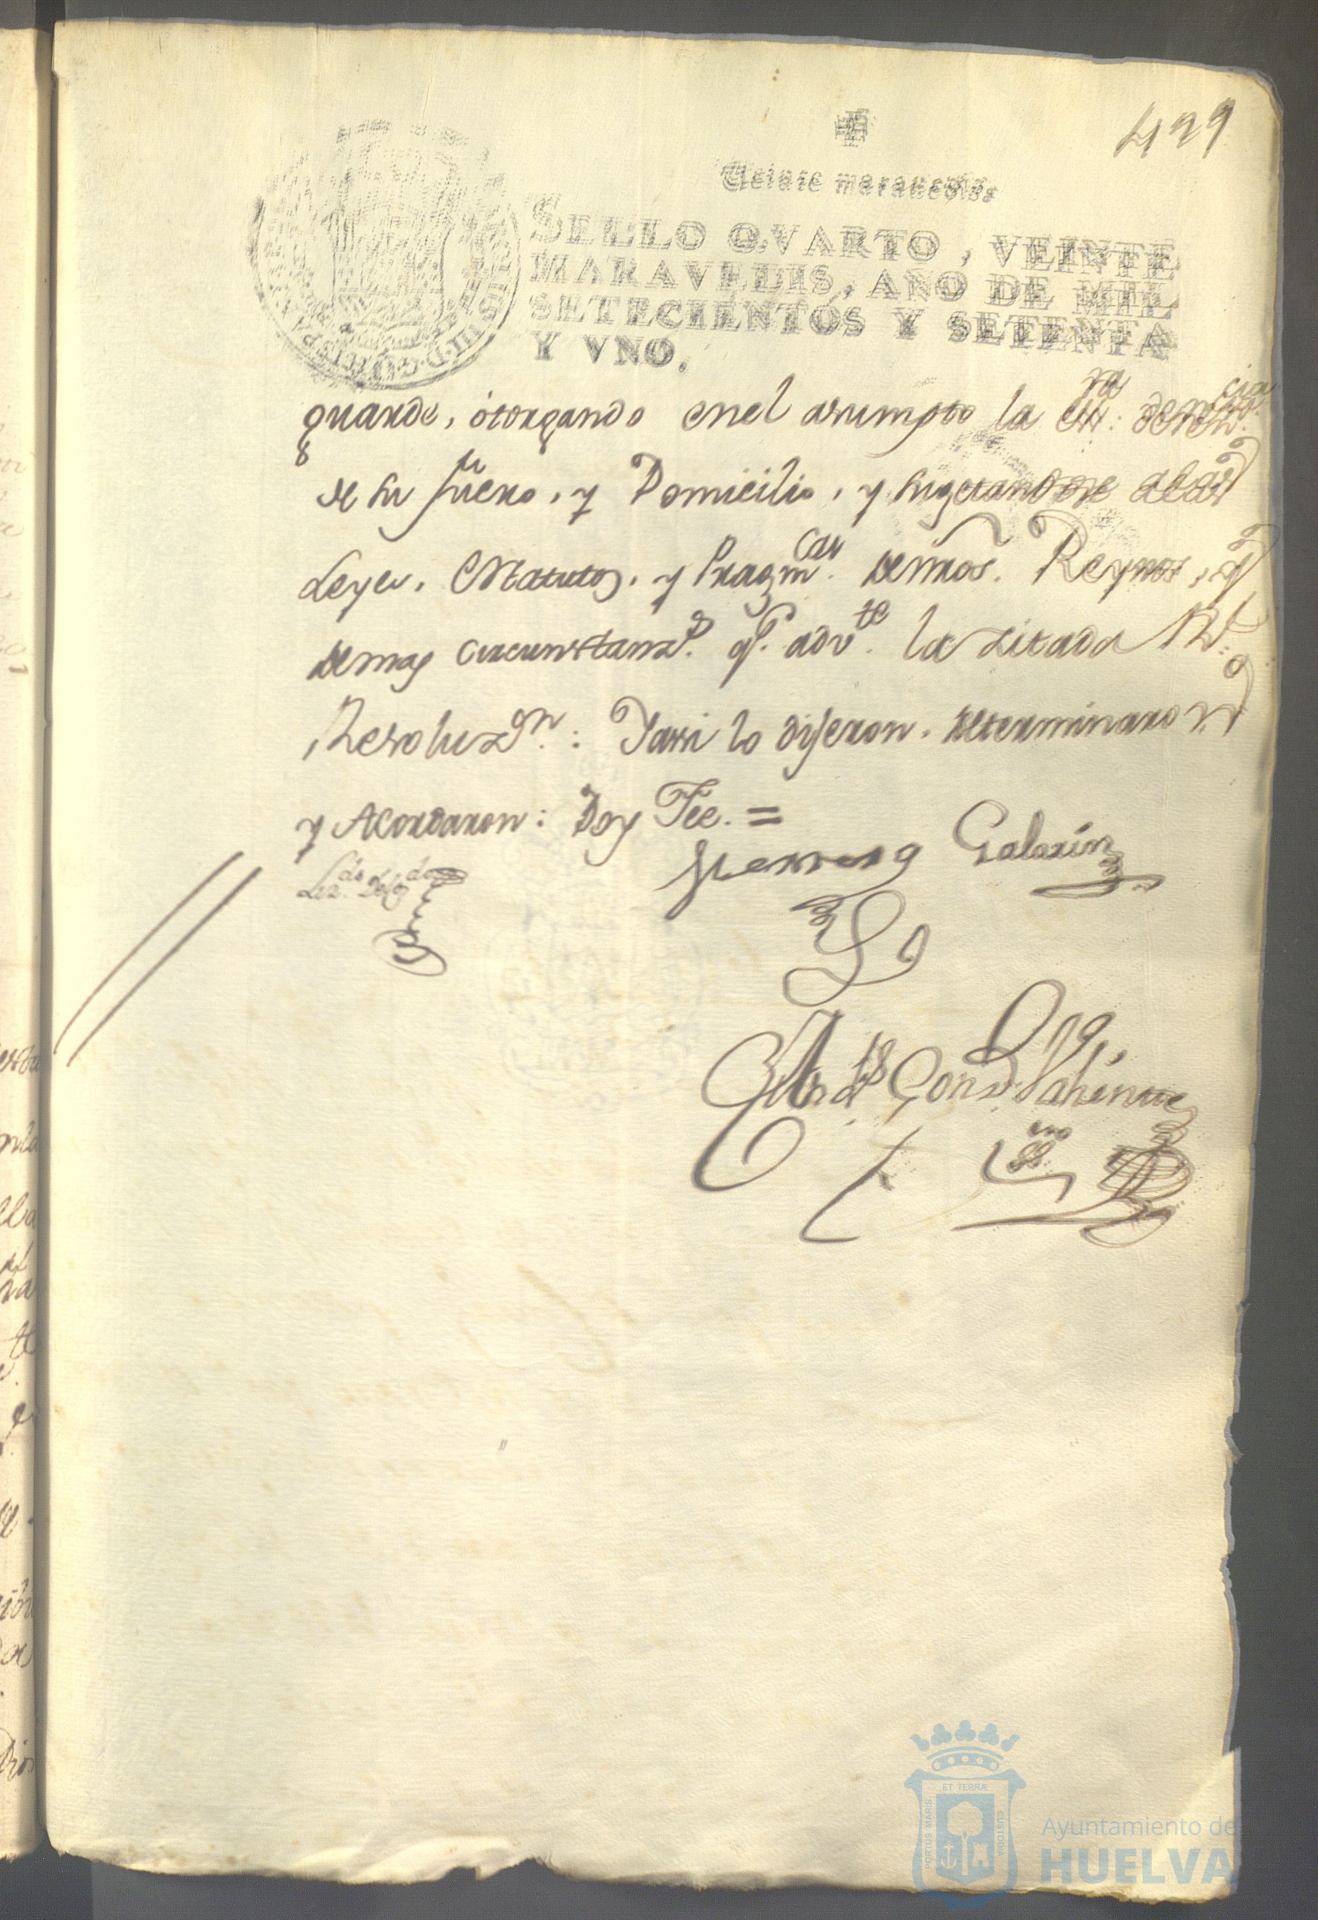 429
Veinte maravedis
SELLO QVARTO, VEINTE
MARAVEDIS, AÑO DE MIL
SETECIENTOS Y SETENTA
Y VNO.
guarde, otorgando enel asumpto la
de su fuero, y Domicilio, y sugetandose alas
Leyes, Estatutos, y Pragm.cas denros. Reynos, y
demas circunstanz.s q.e adv.te la zitada Rl.
Resoluz.on: Yassi lo dijeron, determinaron
y Acordaron: Doy Fee. =
Liz.do Delg.do
Herrera
Galazin
Ayuntamiento de
HUELVA
ET TERRA
PORTUS MARIS
CUSTODIA